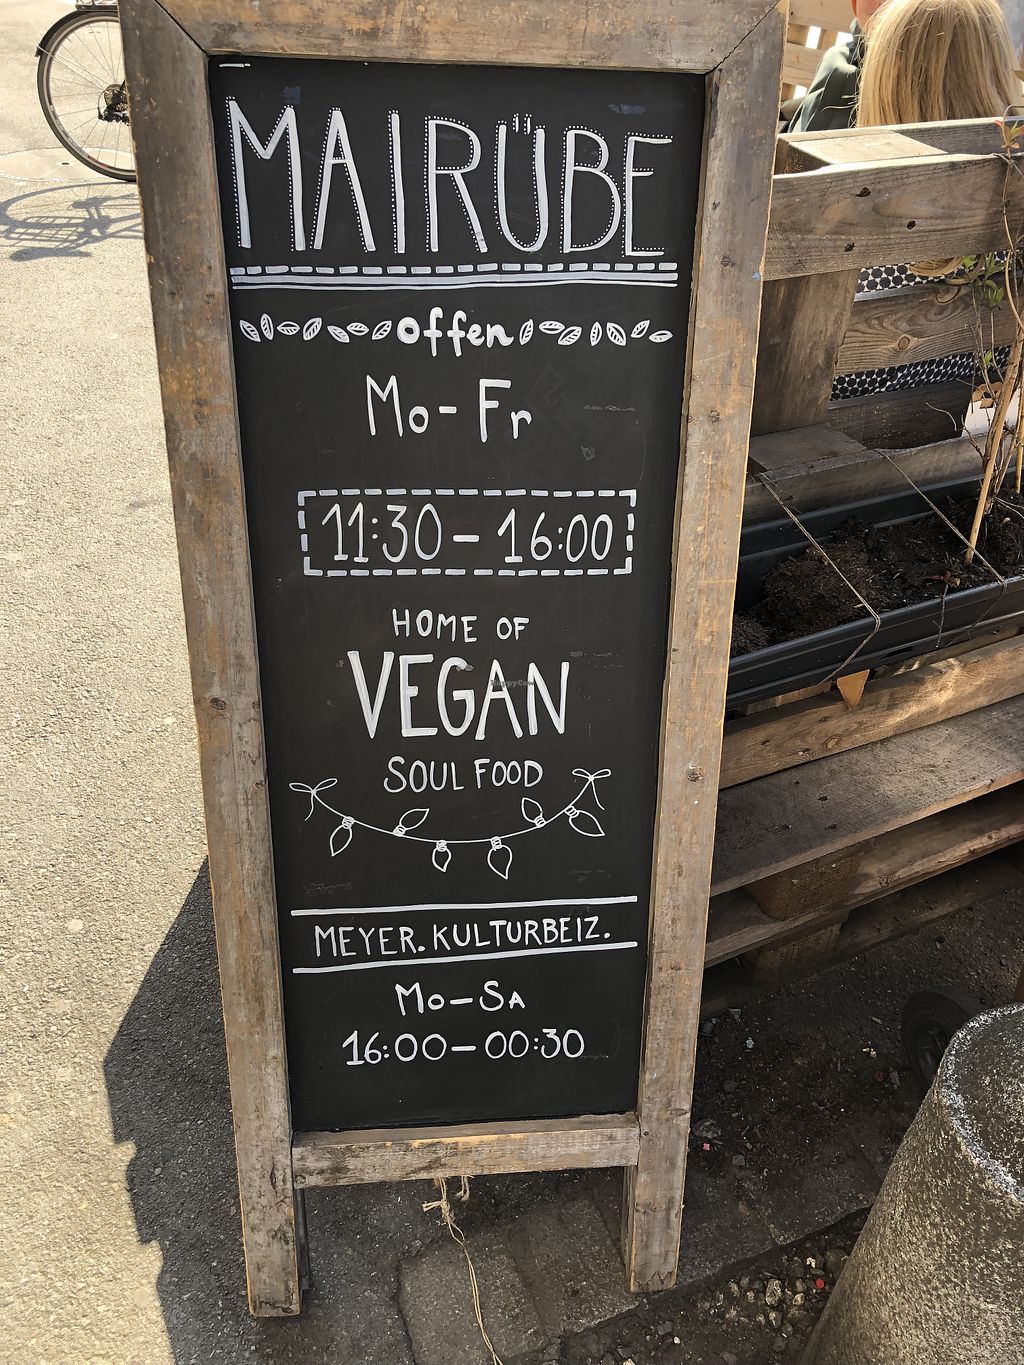 MAIRÜBE
offen
Mo-Fr
11:30-16:00
HOME OF
VEGAN
SOUL FOOD
MEYER. KULTURBEIZ.
Mo-Sa
16:00-00:30